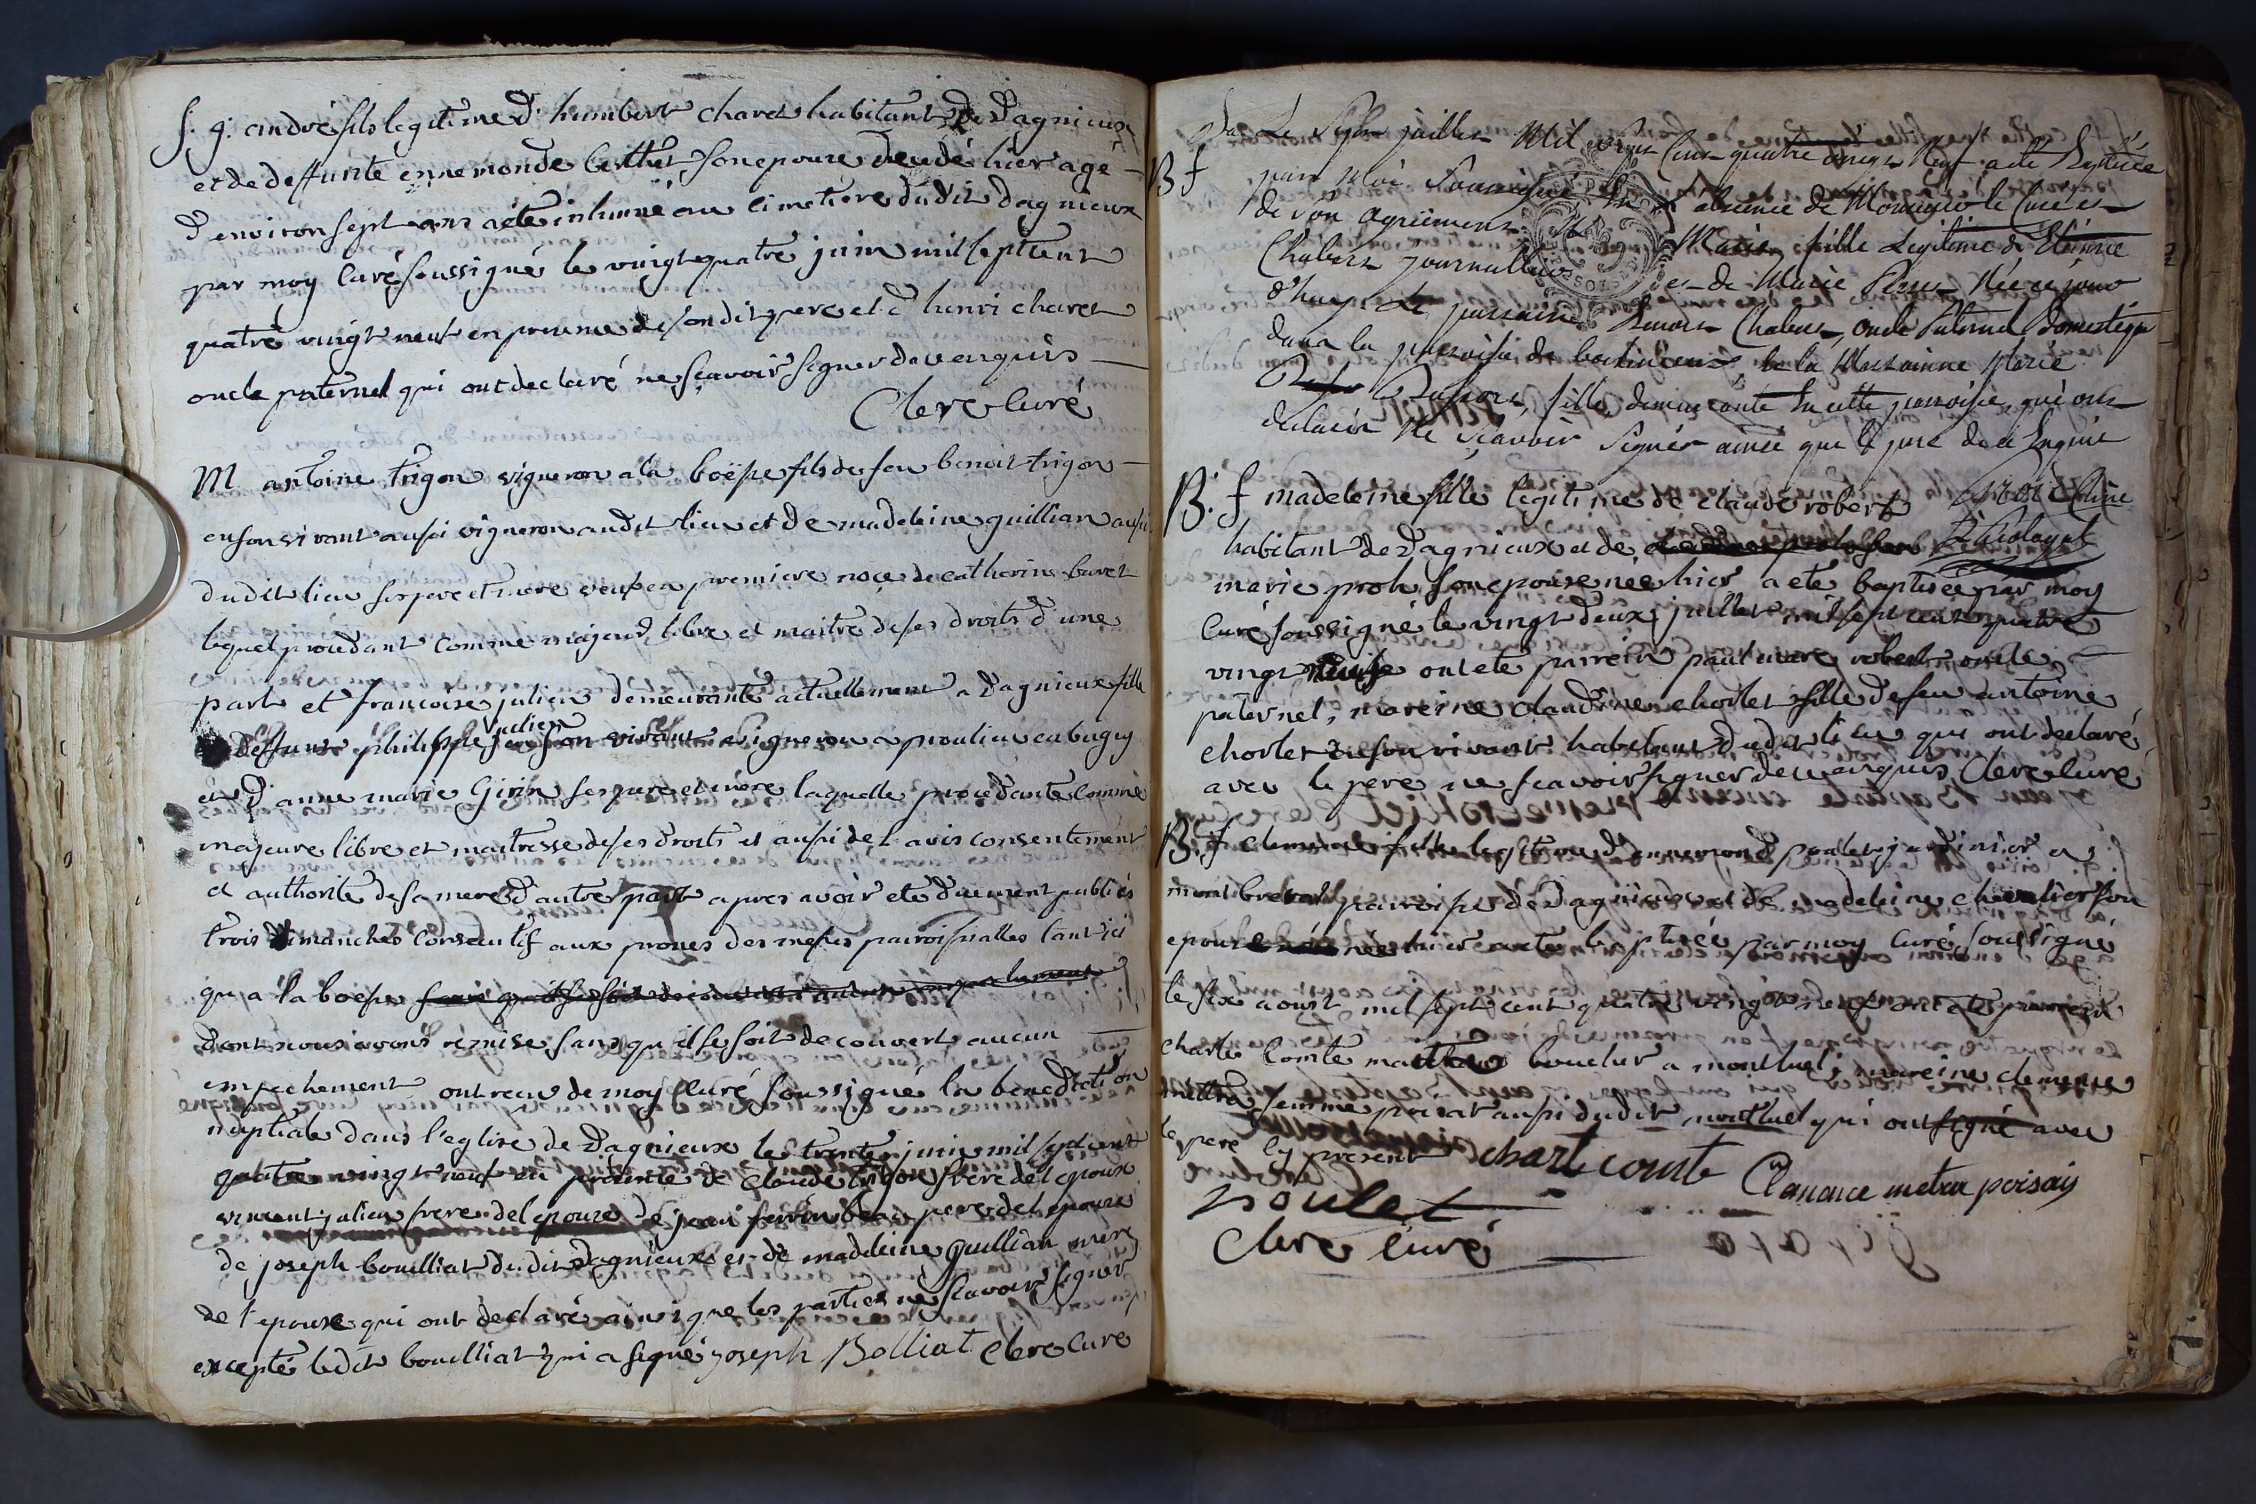 S. g. andré fils legitime d'humbert charet habitant de Dagnieux
et de deffunte ennemonde berthet son epouse decedé hier agé
d'environ sept ans a eté inhumé au cimetiere dudit dagnieux
par moy curé soussigné le vingt quatre juin mil sept cent
quatre vingt neuf en presence de son dit pere et d'henri charet
oncle paternel qui ont declaré ne sçavoir signer de ce enquis
Clerc curé
M antoine trigon vigneron a la boësse fils de feu benoit trigon
en son vivant aussi vigneron audit lieu et de madeleine guillian aussi
dudit lieu ses pere et mere veuf en premiere noce de catherine buvet
lequel procedant comme majeur libre et maitre de ses droits d'une
part et francoise julien demeurante actuellement a Dagnieux fille
deffunt philippe julien en son vivant vigneron a proulieu en bugey
et d'anne marie Girin ses pere et mere laquelle procedante comme
majeure libre et maitresse de ses droits et aussi de l'avis consentement
et authorité de sa mere d'autre part apres avoir eté duement publiés
trois dimanches consecutif aux prones des messes parroissialles tant ici
qu'a la boësse
dont nous avons remise sans qu'il se soit decouvert aucun
empechement ont recu de moy curé soussigné la benediction
nuptiale dans l'eglise de Dagnieux le trente juin mil sept cent
quatre vingt neuf en presence de Claude trigon frere de l'epoux
vincent julien frere de l'epouse de jean perrin beau pere de l'epouse
de joseph bouilliat dudit dagnieux et de madeleine guillian mere
de l'epouse qui ont declaré ainsi que les parties ne sçavoir signer
excepté ledit bouilliat qui a signé joseph Bolliat Clerc Curé
Le juillet Mil Sept Cent quatre vingt Neuf a été Baptisée
B f par Moi Soussigné En absence de Monsieur le Curé et
de son agrément Marie fille Legitime de Etienne
Chabert journallier et de Marie Née ce jour
d'huy le parrain Benoit Chabert, oncle Paternel Domestique
dans la parroisse de La Marrainne Marie
fille demeurante En cette parroisse, qui ont
déclaré Ne Sçavoir Signer ainsi que le pere de ce Enquis
B. f madeleine fille legitime de claude robert
habitant de Dagnieux et de
marie proh son epouse née hier a eté baptisée par moy
curé soussigné le vingt deux juillet mil sept cent quatre
vingt neuf ont eté parrein paul marc robert oncle
paternel, mareine claudine chorlet fille de feu antoine
chorlet en son vivant habitant dudit lieu qui ont declaré
avec le pere ne scavoir signer de ce enquis Clerc curé
B. f clemence fille legitime d'ennemond poulet jardinier a
montbretant parroisse de Dagnieux et de madeleine chevalier son
epouse née hier a eté baptisée par moy curé soussigné
le six aoust mil sept cent quatre vingt neuf ont eté parrein
charle Comte maitre boucher a montluel, mareine clemence
femme aussi dudit montluel qui ont signé avec
le pere cy present charle comte Clanance metra poisais
poulet
Clerc curé